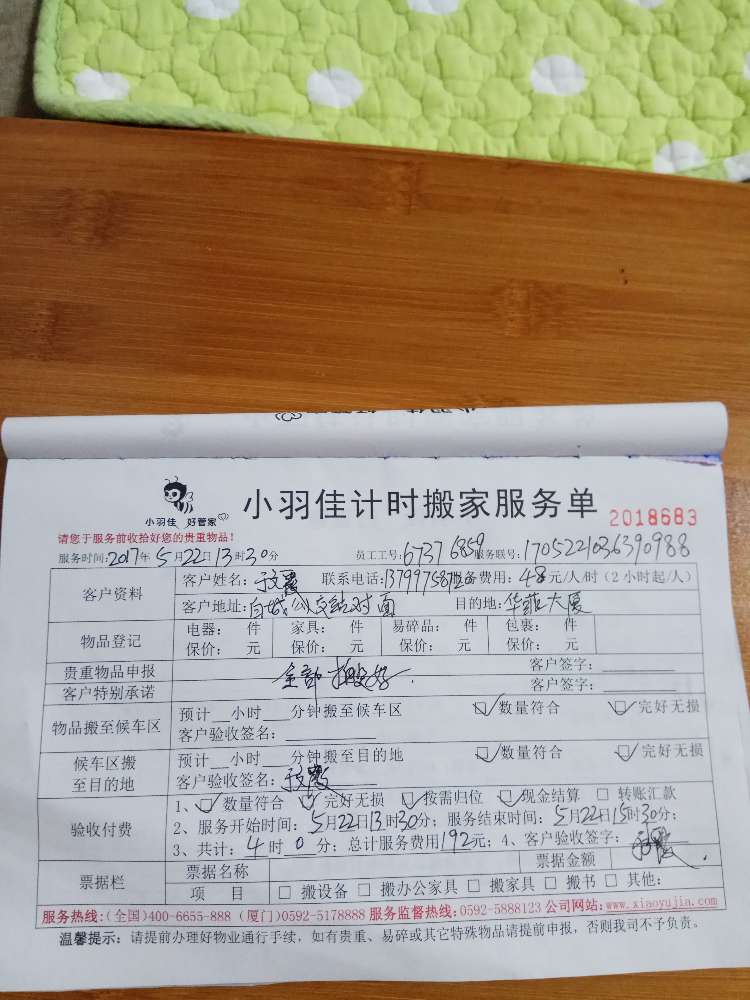 小羽佳 好管家
小羽佳计时搬家服务单 2018683
请您于服务前收拾好您的贵重物品！
服务时间：2017年5月22日13时30分 员工工号：6737 6859 服务联号：1705221036390988
客户资料
客户姓名： 联系电话： 服务费用：48元/人/时（2小时起/人）
客户地址：白城公交站对面 目的地：华菲大厦
物品登记
电器： 件 家具： 件 易碎品： 件 包裹： 件
保价： 元 保价： 元 保价： 元 保价： 元
贵重物品申报 客户签字：
客户特别承诺 全部搬好. 客户签字：
物品搬至候车区
预计__小时___分钟搬至候车区 数量符合 完好无损
客户验收签名：
候车区搬至目的地
预计__小时___分钟搬至目的地 数量符合 完好无损
客户验收签名：
验收付费
1、数量符合 完好无损 按需归位 现金结算 转账汇款
2、服务开始时间：5月22日13时30分；服务结束时间：5月22日15时30分；
3、共计：4时0分；总计服务费用192元；4、客户验收签字：
票据栏
票据名称 票据金额
项 目 搬设备 搬办公家具 搬家具 搬书 其他：
服务热线：(全国)400-6655-888 (厦门)0592-5178888 服务监督热线：0592-5888123 公司网站：www.xiaoyujia.com
温馨提示：请提前办理好物业通行手续，如有贵重、易碎或其它特殊物品请提前申报，否则我司不予负责。